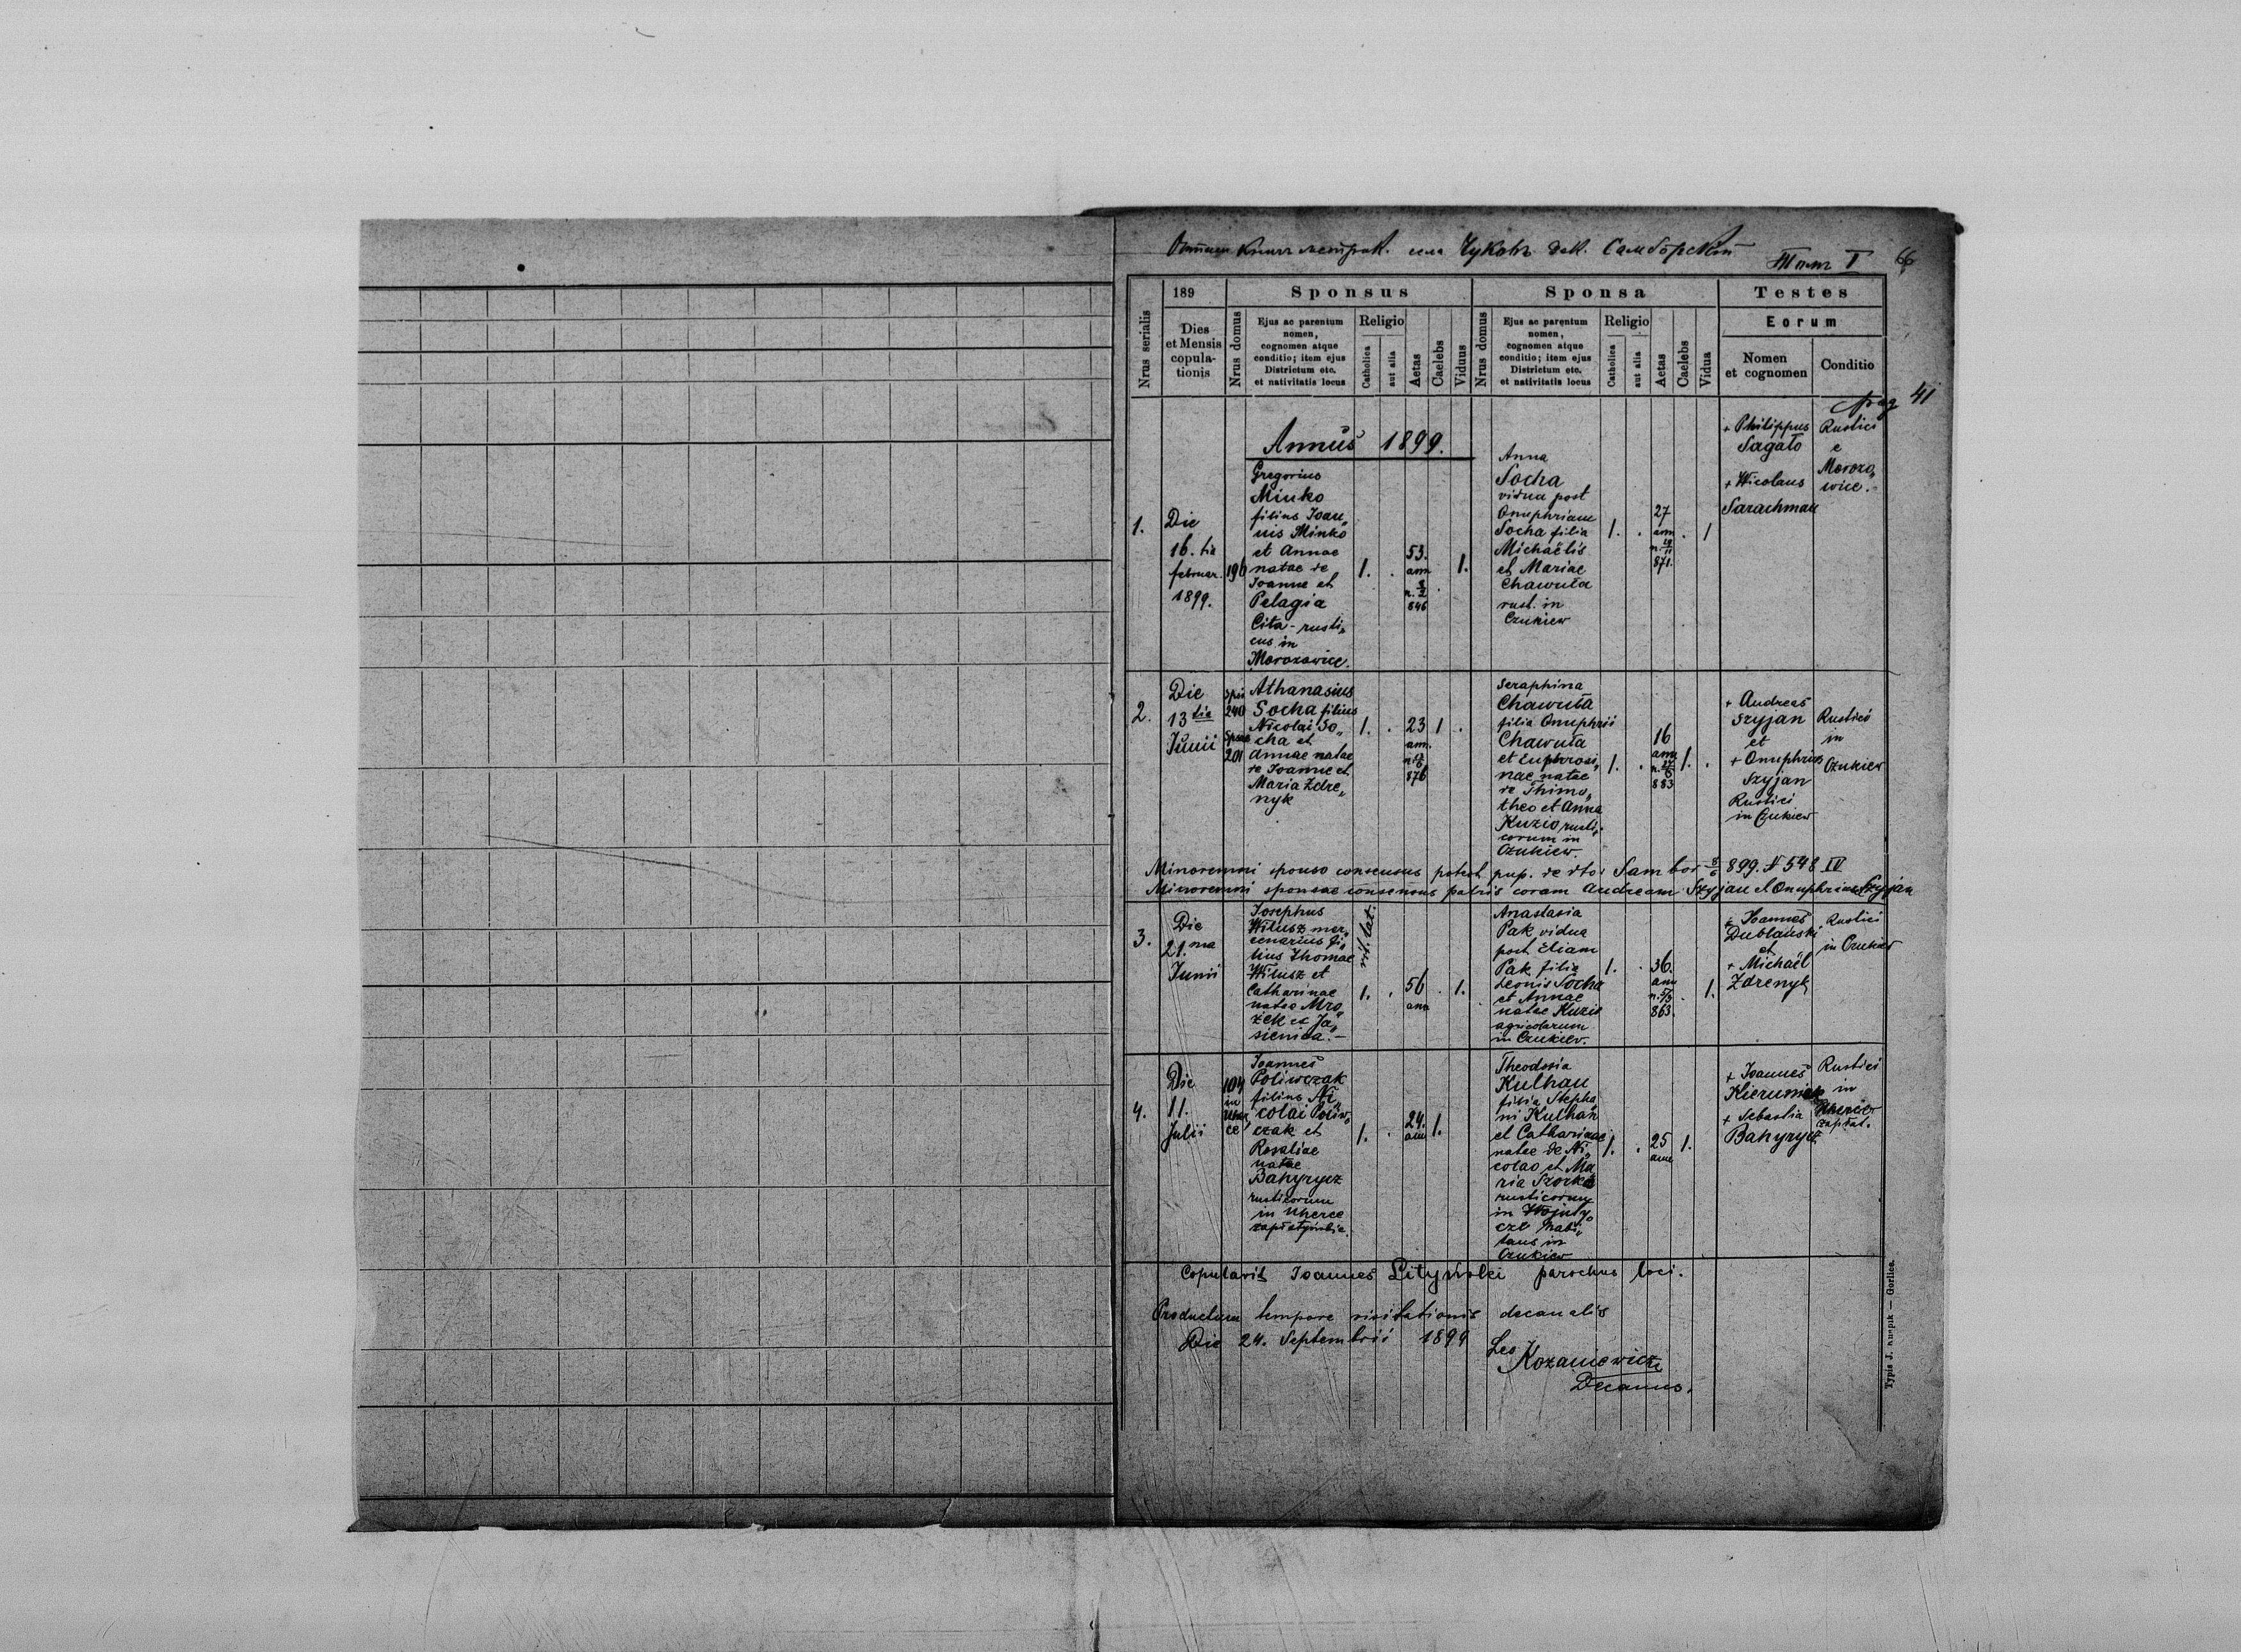 книги метрик. села Чуковъ дек. Самборскій
Томъ I 66
189 Sponsus Sponsa Testes
Nrus serialis
Dies
et Mensis
copula-
tionis
Nrus domus
Ejus ac parentum
nomen,
cognomen atque
conditio; item ejus
Districtum etc.
et nativitatis locus
Religio
Catholica
aut alia
Aetas
Caelebs
Viduus
Nrus domus
Ejus ac parentum
nomen,
cognomen atque
conditio; item ejus
Districtum etc.
et nativitatis locus
Religio
Catholica
aut alia
Aetas
Caelebs
Vidua
Eorum
Nomen
et cognomen
Conditio
pag 41
Annus 1899.
1.
Die
16. tia
februar.
1899.
190
Gregorius
Minko
filius Joan„
nis Minko
et Annae
natae de
Joanne et
Pelagia
Cita - rusti„
cus in
Morozowice.
1. .
53.
ann
n. 2/2
846
. 1.
Anna
Socha
vidua post
Onuphrium
Socha filia
Michaëlis
et Mariae
Chawuła
rust. in
Czukiew
1. .
27
ann
n. 18/11
871.
. 1
+ Philippus
Sagało
+ Nicolaus
Sarachman
Rustici
e
Morozo„
wice.
2.
Die
13 tia
Junii
Spsi
240
Spsae
201
Athanasius
Socha filius
Nicolai So„
cha et
Annae natae
de Joanne et
Maria Zdre„
nyk
1. .
23
ann.
876
1 .
Seraphina
Chawuła
filia Onuphrii
Chawuła
et Euphrosi„
nae natae
de Thimo„
theo et Anna
Kuzio rusti„
corum in
Czukiew.
1. .
16
ann
883
1. .
+ Andreas
Szyjan
et
+ Onuphrius
Szyjan
Rustici
in Czukiew
Rustici
in
Czukiew
Minorenni sponso consensus potest. pup. de dto: Sambor 8/6 899. N 548 IV
Minorenni sponsae consensus patris coram Andream Szyjan et Onuphrium Szyjan
3.
Die
21. ma
Junii
Josephus
Witusz mer„
cenarius fi„
lius Thomae
Witusz et
Catharinae
natae Mro„
żek e Ja„
sienica.-
rit. lat.
1. .
56
ann
. 1.
Anastasia
Pak vidua
post Eliam
Pak filia
Leonis Socha
et Annae
natae Kuzio
agricolarum
in Czukiew.
1. .
36.
ann
n. 5/3
863.
. 1.
+ Joannes
Dublański
et
+ Michaël
Zdrenyk
Rustici
in Czukiew
4.
Die
11.
Julii
104
in
Uher„
ce
Joannes
Poliwczak
filius Ni„
colai Poliw„
czak et
Rosaliae
natae
Bahyrycz
rusticorum
in Uherce
zapłatyńskie.
1. .
24.
ann
1.
Theodosia
Kulhan
filia Stepha
ni Kulhan
et Catharinae
natae de Ni„
colao et Ma
ria Szorka
rusticorum
in Wojuty„
cze habi„
tans in
Czukiew
1. .
25
ann
1.
+ Joannes
+ Sebastia
Bahyrycz
Rustici
in
Uherce
zapłat.
Copulavit Joannes Lityński parochus loci.
Productum tempore visitationis decanalis
Die 24. Septembris 1899
Leo
Kozaniewicz
Decanus.
Typis J. — Gorlice.